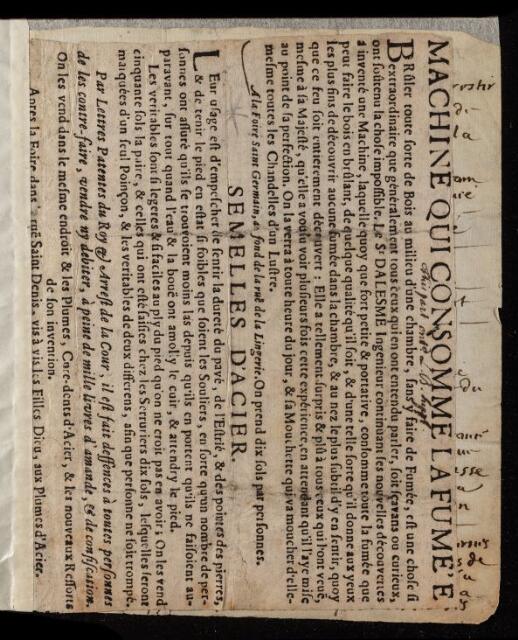 MACHINE QUI CONSOMME LA FUME'E.
BRûler toute sorte de Bois au milieu d'une chambre, sans y faire de Fumée, est une chose si
extraordinaire que généralement tous ceux qui en ont entendu parler, soit sçavans ou curieux,
ont soûtenu la chose impossible. Le Sr DALESME Ingenieur, continuant ses nouvelles découvertes
a inventé une Machine, laquelle quoy que fort petite & portative, consomme toute la fumée que
peut faire le bois en brûlant, de quelque qualité qu'il soit, & d'une telle sorte qu'il donne aux yeux
les plus fins de découvrir aucune fumée dans la chambre, & au nez le plus subtil d'y en sentir, quoy
que ce feu soit entierement découvert: Elle a tellement surpris & plû à tous ceux qui l'ont veuë,
mesme à sa Majesté, qu'elle a voulu voir plusieurs fois cette expérience, en attendant qu'il l'aye mise
au point de sa perfection. On la verra à toute heure du jour, & sa Mouchette qui va moucher d'elle-
mesme toutes les Chandelles d'un Lustre.
A la Foire Saint Germain, au fond de la ruë de la Lingerie. On prend dix sols par personnes.
SEMELLES D'ACIER.
LEur usage est d'empescher de sentir la dureté du pavé, de l'Estrié, & des pointes des pierres,
& de tenir le pied en estat si foibles que soient les Souliers, en sorte qu'un nombre de per-
sonnes ont assuré qu'ils se trouvoient moins las depuis qu'ils en portent qu'ils ne faisoient au-
paravant, sur tout quand l'eau & la bouë ont amolly le cuir, & attendry le pied.
Les veritables sont si legeres & si faciles au ply du pied qu'on ne croit pas en avoir; On les vend
cinquante sols la paire, & celles qui ont esté saisies chez les Serruriers dix sols, lesquelles seront
marquées d'un seul Poinçon, & les veritables de deux differens, afin que personne ne soit trompé.
Par Lettres Patentes du Roy & Arrest de la Cour, il est fait deffences à toutes personnes
de les contre-faire, vendre ny debiter, à peine de mille livres d'amande, & de confiscation.
On les vend dans le mesme endroit & les Plumes, Cure-dents d'Acier, & les nouveaux Ressorts
de son invention.
Apres la Foire dans ruë Saint Denis, vis à vis les Filles Dieu, aux Plumes d'Acier.